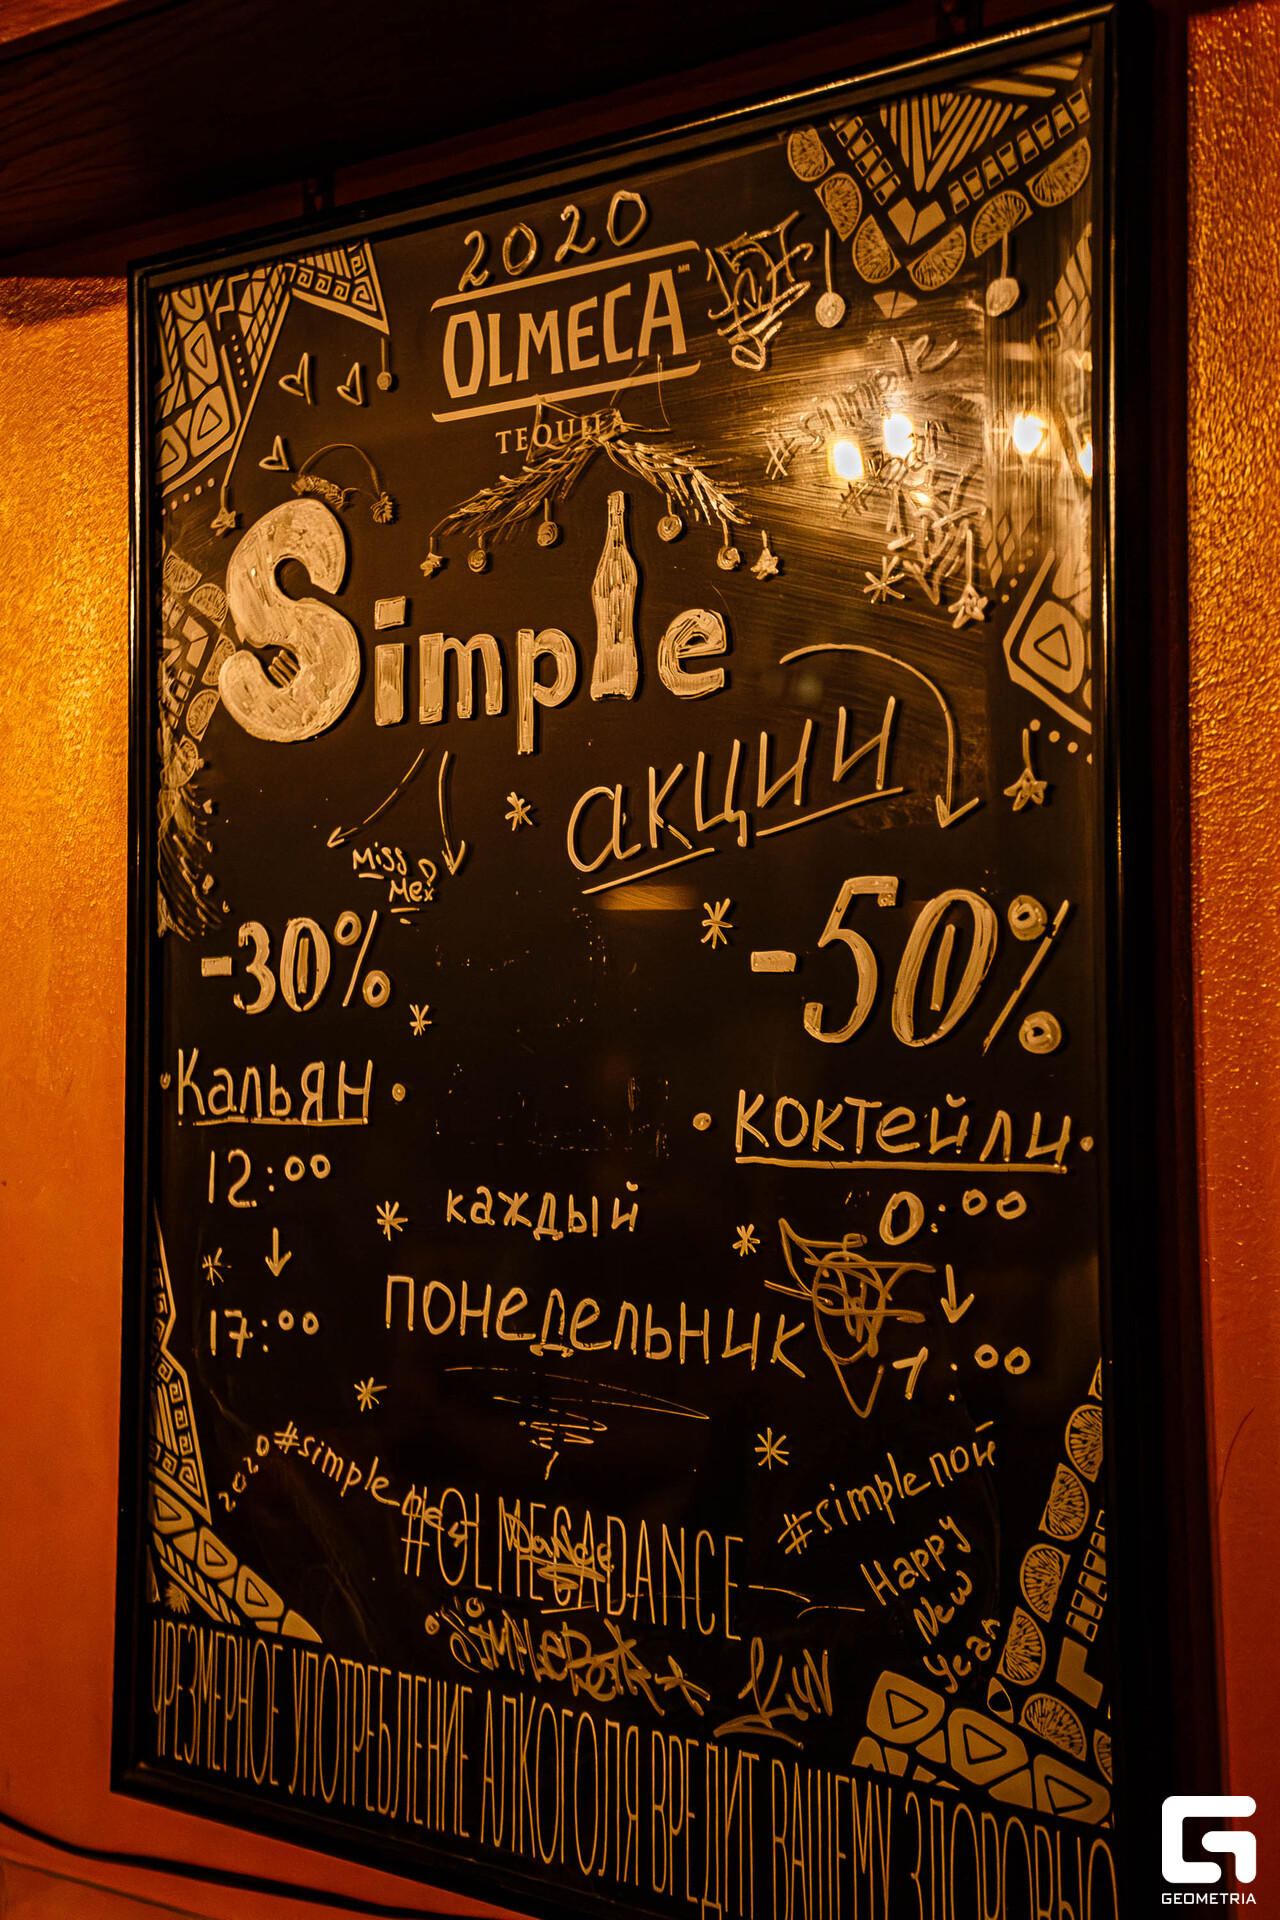 2020
OLMECA
TEQUILA
#simple
Simple
акции
Miss
Mex
-30%
Кальян
12:00
17:00
-50%
коктейли
0:00
1:00
каждый
понедельник
2020
#simple
#simpleпой
#OLMECADANCE
Dance
Happy
New
Year
ЧРЕЗМЕРНОЕ УПОТРЕБЛЕНИЕ АЛКОГОЛЯ ВРЕДИТ ВАШЕМУ ЗДОРОВЬЮ
GEOMETRIA